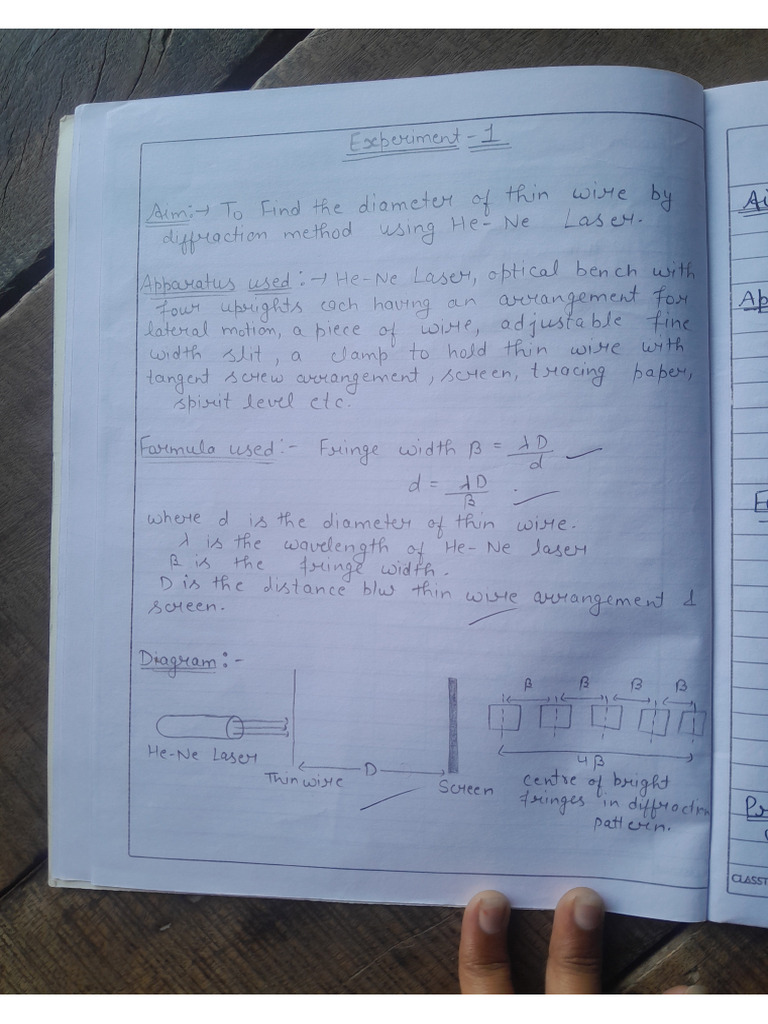 Experiment - 1
Aim:→ To Find the diameter of thin wire by
diffraction method using He-Ne Laser.
Apparatus used:→ He-Ne Laser, optical bench with
four uprights each having an arrangement for
lateral motion, a piece of wire, adjustable fine
width slit, a clamp to hold thin wire with
tangent screw arrangement, screen, tracing paper,
spirit level etc.
Farmula used:- Fringe width β = λD/d
d = λD/β
where d is the diameter of thin wire.
λ is the wavelength of He-Ne laser
β is the fringe width.
D is the distance b/w thin wire arrangement &
screen.
Diagram:-
β β β β
He-Ne Laser
Thin wire
D
Screen
4β
centre of bright
fringes in diffractrn
pattern.
Ai
Ap
Pr
CLASST